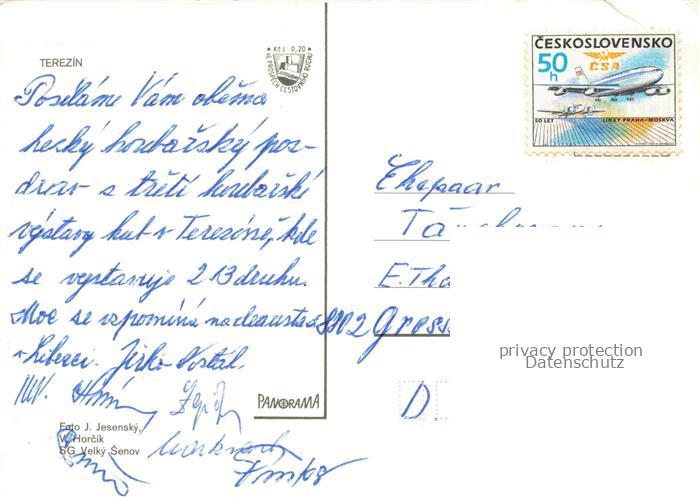 TEREZÍN
Kčs 0,20
VE PROSPĚCH CESTOVNÍHO RUCHU
Posíláme Vám oběma
hezký houbařský poz-
drav s třetí houbařské
výstavy hub v Terezíně, kde
se vystavuje 213 druhů.
Moc se vzpomíná na
v Liberci. Jirka Vostál.
PANORAMA
Foto J. Jesenský,
V. Horčík
SG Velký Šenov
ČESKOSLOVENSKO
50 h
ČSA
50 LET LINKY PRAHA-MOSKVA
Ehepaar
E. Tha
8802 Gross
D
privacy protection
Datenschutz